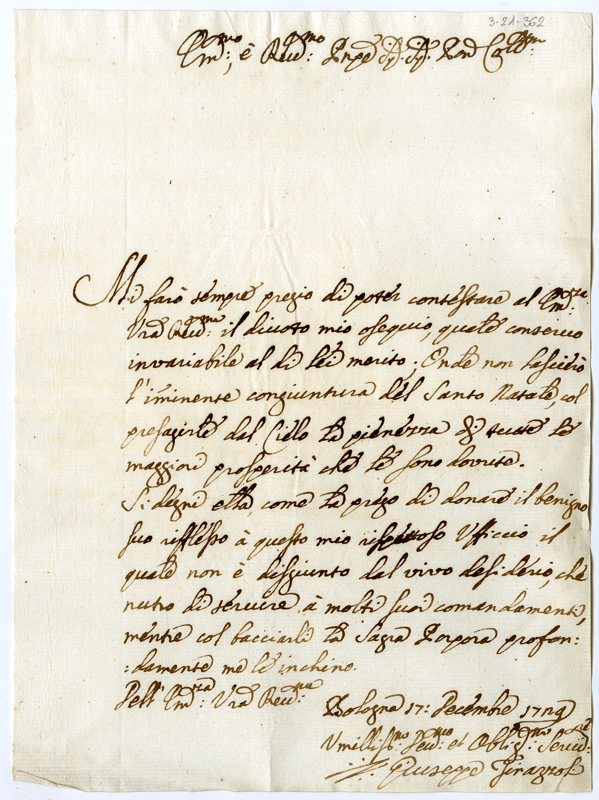 3-21-362
Em:mo, è Reud:mo Prnpe Sig. Sig. Pron Coll:mo
Mi farò sempre pregio di poter contestare al Em:za
Vrã Reud:ma il diuoto mio osequio, quale conseruo
inuariabile al di lei merito; Onde non lascierò
l'iminente congiuntura del Santo Natale, col
presagirle dal Cielo la pienezza di tutte le
maggiori prosperità che le sono dovute.
Si degni ella come la prego di donare il benigno
suo riflesso à questo mio rispettoso Ufficio il
quale non è disgiunto dal vivo desiderio, che
nutro di seruire à molti suoi comandamenti,
mentre col bacciarli la Sagra Porpora profon:
:damente me le inchino.
Dell' Em:za Vrã Reud:ma
Bologna 17: Decembre
Vmilliss:mo Deu:mo et Oblig:mo Seruid:re
Giuseppe